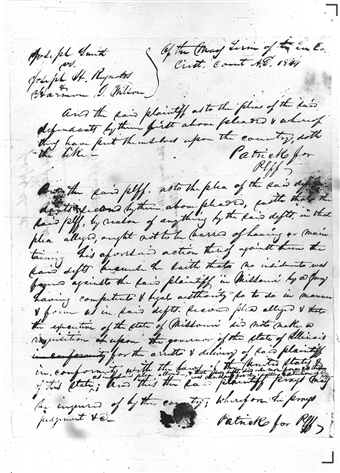 Joseph Smith
vs.
Joseph H. Reynolds
Harmon T. Wilson
Of the May Term of the Lee Co.
Circt. Court A.D. 1844
And the said plaintiff as to the plea of the said
defendants by them first above pleaded & whereof
they have put themselves upon the country, doth
the like
Patrick for
Plff
And the said plff. as to the plea of the said
defts by them above pleaded, saith that the
said plff by reason of anything by the said defts in that
plea alleged, ought not to be barred of having or main
taining his aforesaid action thereof against them the
said defts because he saith that no indictment was
found against the said plaintiff in Missouri by a
having competent & legal authority so to do in manner
& form as in said defts. second plea alleged & that
the executive of the state of Missouri did not make a
requisition upon the governor of the state of Illinois
for the arrest & delivery of said plaintiff
in conformity with the laws of the United States
of this state; And this the said plaintiff prays may
be inquired of by the country; wherefore he prays
judgment &c
Patrick for Plff